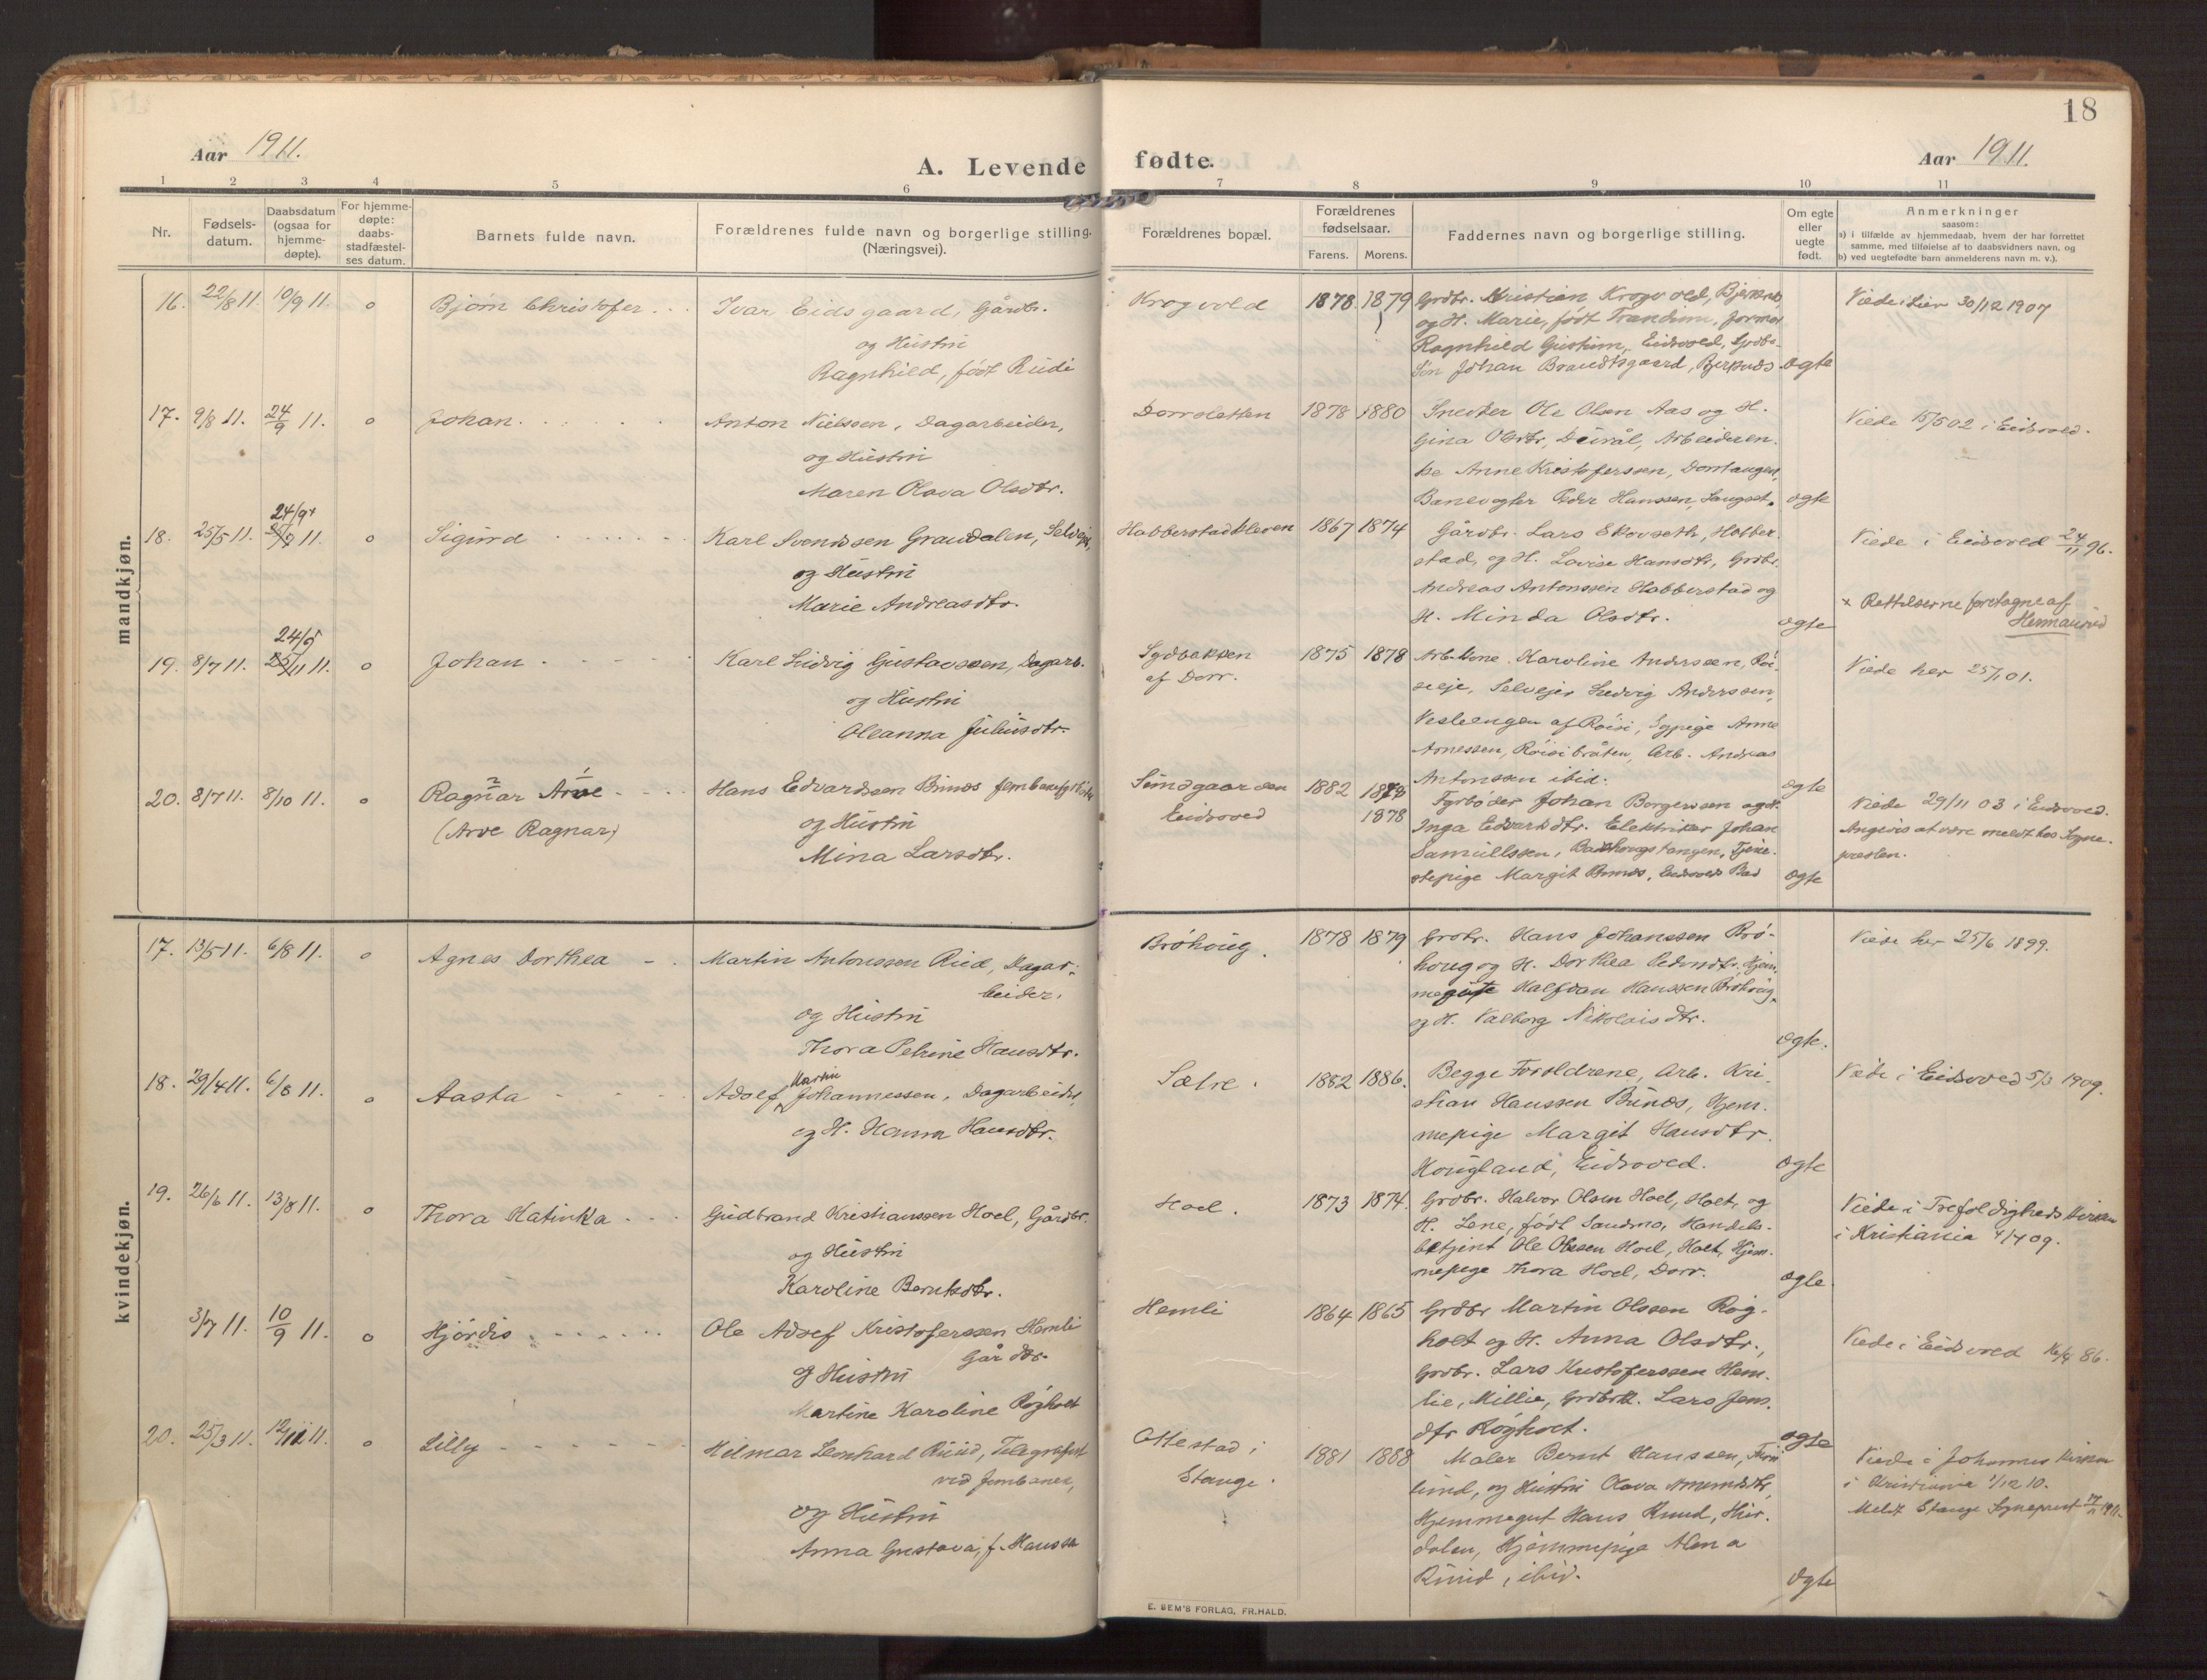 18
Aar 1911.
A. Levende fødte.
Aar 1911.
1 2 3 4 5 6 7 8 9 10 11
Nr.
Fødsels-
datum.
Daabsdatum
(ogsaa for
hjemme-
døpte).
For hjemme-
døpte:
daabs-
stadfæstel-
ses datum.
Barnets fulde navn.
Forældrenes fulde navn og borgerlige stilling.
(Næringsvei).
Forældrenes bopæl.
Forældrenes
fødselsaar.
Farens. Morens.
Faddernes navn og borgerlige stilling.
Om egte
eller
uegte
født.
Anmerkninger
saasom:
a) i tilfælde av hjemmedaab, hvem der har forrettet
samme, med tilføielse af to daabsvidners navn, og
b) ved uegtefødte barn anmelderens navn m. v.).
mandkjøn.
16. 22/8 11. 10/9 11. o Bjørn Christofer
Ivar Eidsgaard, Gårdbr.
og Hustru
Ragnhild, født Rudi
Krogvold 1878 1879
Grdbr. Kristian Krogvold, Bjerknes
og H. Marie, født Trandum,
Ragnhild Gustum, Eidsvold, Grdbr.
Søn Johan Brandtsgaard, Bjerknes
ægte
Viede i Lier 30/12 1907
17. 9/8 11. 24/9 11. o Johan
Anton Nielsen, Dagarbeider,
og Hustru
Maren Olava Olsdtr.
Dorrsletten 1878 1880
Snedker Ole Olsen Aas og H.
Gina Olsdtr, Arbeideren-
ke Anne Kristoferssen, Dorrtangen,
Banevogter Peder Hanssen, Langset.
ægte
Viede 15/5 02 i Eidsvold.
18. 25/5 11. 24/9+ 11. o Sigurd
Karl Svendssen Graudalen, Selveier,
og Hustru
Marie Andreasdtr.
Habberstadkleven 1867 1874
Gårdbr. Lars Skovseth, Habber-
stad, og H. Lovise Hansdtr, Grdbr.
Andreas Antonssen Habberstad og
H. Minda Olsdtr.
ægte
Viede i Eidsvold 24/11 96.
+ Rettelserne foretagne af
19. 8/7 11. 24/9 11. o Johan
Karl Ludvig Gustavssen, Dagarb.
og Hustru
Oleanna Juliusdtr.
Sydbakken
af Dorr.
1875 1878
Arb.kone Karoline Anderssen, Røi-
seeje, Selveier Ludvig Anderssen,
Vesleengen af Røisi, Sypige Anne
Arnessen, Røisibråten, Arb. Andreas
Antonssen ibid.
ægte
Viede her 25/1 01.
20. 8/7 11. 8/10 11. o Ragnar Arve
(Arve Ragnar)
Hans Edvardsen Bunes
og Hustru
Mina Larsdtr.
Sundgaarden
Eidsvold
1882 1878
1878
Fyrbøder Johan Borgerssen og H.
Inga Edvardsdtr. Elektriker Johan
Samuelssen, Badhaugstangen, Tjene-
stepige Margit Bunes, Eidsvold Bad
ægte
Viede 29/11 03 i Eidsvold.
Angivis at være meldt hos Sogne-
presten.
kvindekjøn.
17. 13/5 11. 6/8 11. o Agnes Dorthea
Martin Antonssen Rud, Dagar-
beider,
og Hustru
Thora Petrine Hansdtr.
Brøhoug. 1878 1879
Grdbr. Hans Johanssen Brø-
houg og H. Dorthea Pedersdtr. Hjem-
megut Halfdan Hanssen Brøhoug,
og H. Valborg Nikolaisdtr.
ægte.
Viede her 25/6 1899.
18. 29/4 11. 6/8 11. o Aasta
Martin
Adolf Johannessen, Dagarbeider,
og H. Hanna Hansdtr.
Sætre. 1882 1886.
Begge Forældrene, Arb. Kri-
stian Hanssen Bunes, Hjem-
mepige Margit Hansdtr.
Hougland, Eidsvold.
ægte
Viede i Eidsvold 5/3 1909.
19. 26/6 11. 13/8 11. o Thora Katinka
Gudbrand Kristianssen Hoel, Gårdbr.
og Hustru
Karoline Berntsdtr.
Hoel. 1873 1874.
Grdbr. Halvor Olsen Hoel, Holt, og
H. Lene, født Sandmo, Handels-
betjent Ole Olssen Hoel, Holt, Hjem-
mepige Thora Hoel, Dorr.
ægte
Viede i Trefoldigheds Kirken
i Kristiania 4/4 09.
3/7 11. 10/9 11. o Hjørdis
Ole Adolf Kristoferssen Hemli
Gårdbr.
og Hustru
Martine Karoline Røgholt
Hemli 1864 1865
Grdbr Martin Olssen Røg-
holt og H. Anna Olsdtr.,
Grdbr. Lars Kristoferssen Hem-
lie, Millie, Lars Jens-
dtr Røgholt.
ægte
Viede i Eidsvold 86.
20. 25/3 11. 12/11 11. o Lilly
Hilmar Leonhard Ruud, Telegrafist
ved Jernbanen,
og Hustru
Anna Gustava, f. Hanssen
Ottestad i
Stange.
1881 1888
Maler Bernt Hanssen,
og Hustru Olava Amundsdtr,
Hjemmegut Hans Ruud, Hur-
dalen, Hjemmepige Alena
Ruud, ibid.
ægte
Viede i Johannes Kirken
i Kristiania 1/12 10.
Meldt Stange Sogneprest 17/11 1911.
E. SEM'S FORLAG, FR.HALD.